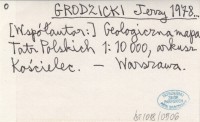 GRODZICKI Jerzy 1978...
[Współautor:] Geologiczna mapa
Tatr Polskich 1:10 000, arkusz
Kościelec. — Warszawa.